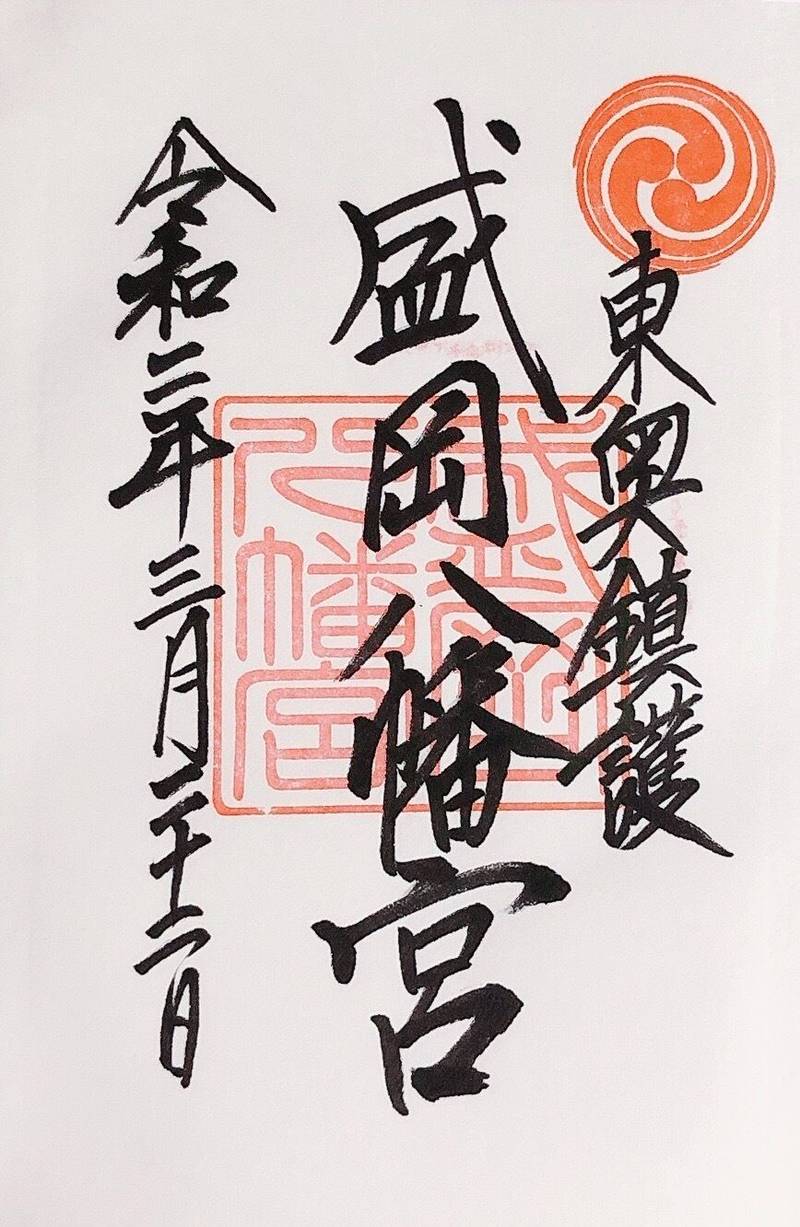 東奥鎮護
盛岡八幡宮
盛岡八幡宮
令和二年三月二十二日